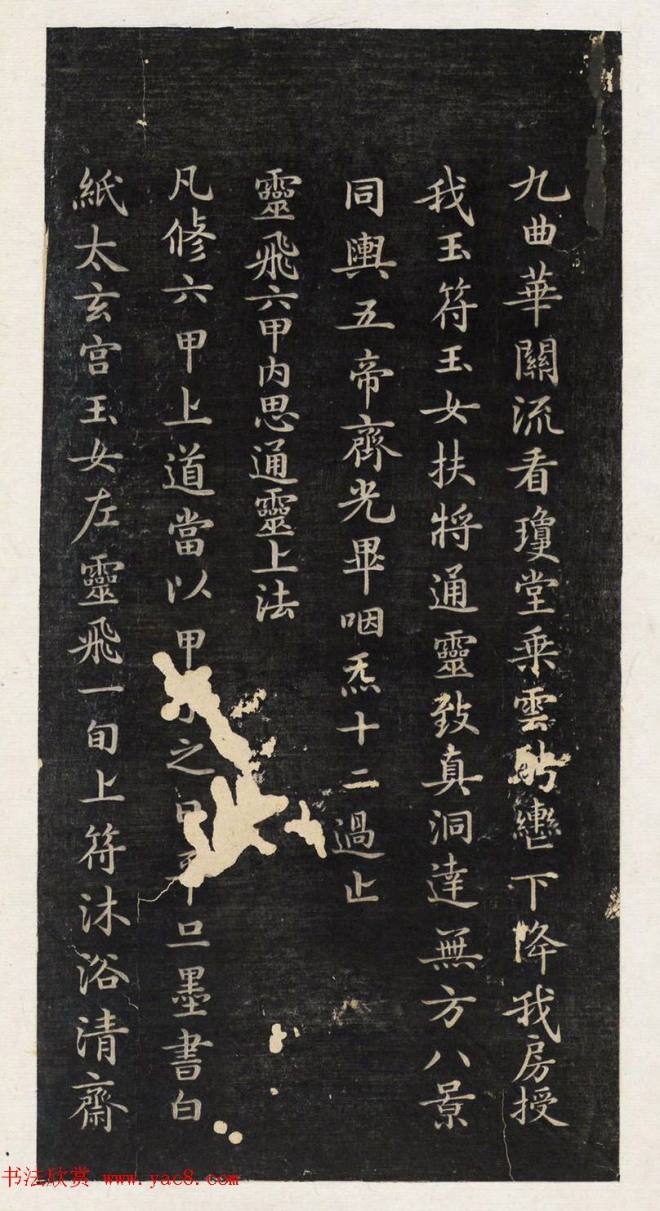 九曲華關流看瓊堂乘雲轡下降我房授
我玉符玉女扶將通靈致真洞達無方八景
同輿五帝齊光畢咽炁十二過止
靈飛六甲內思通靈上法
凡修六甲上道當以甲之日旦墨書白
紙太玄宮玉女左靈飛一旬上符沐浴清齋
书法欣赏 www.yac8.com